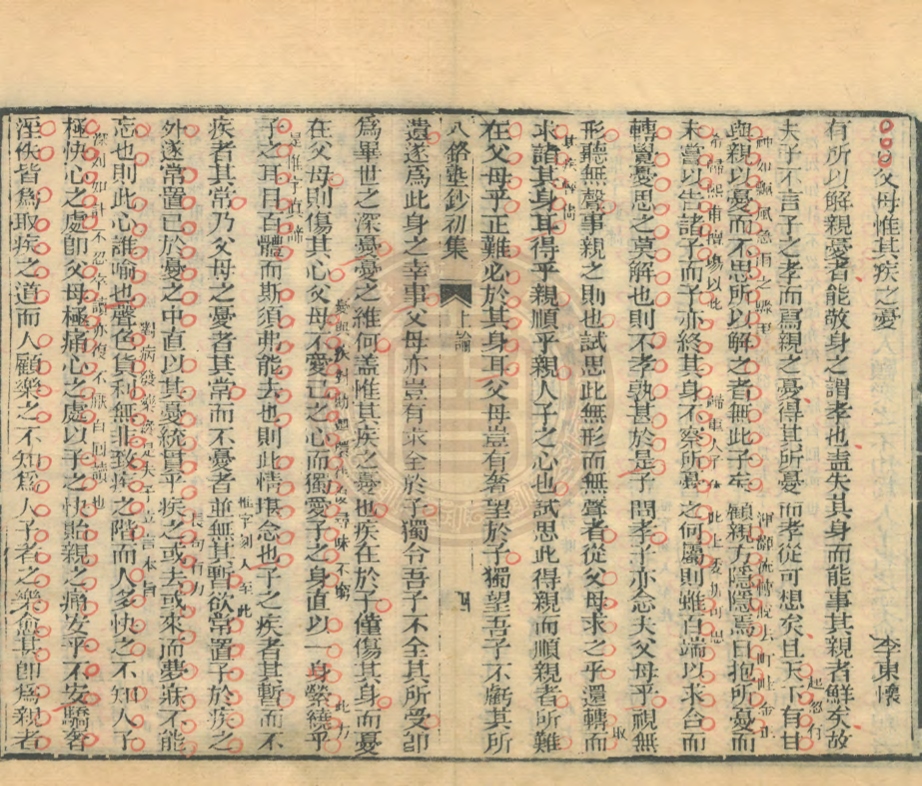 父母惟其疾之憂
李東懷
有所以解親憂者能敬身之謂孝也蓋失其身而能事其親者鮮矣故
夫子不言子之孝而寫親之憂得其所憂而孝從可想矣且天下有甘
與親以憂而不思所以解之者無此子矣顧親方隱隱焉日抱所憂而
未嘗以告諸子而子亦終其身不察所憂之何屬則雖百端以求合而
轉覺憂思之莫解也則不孝孰甚於是子問孝子亦念夫父母乎視無
形聽無聲事親之則也試思此無形而無聲者從父母求之乎還轉而
求諸其身耳得乎親順乎親人子之心也試思此得親而順親者所難
在父母乎正難必於其身耳父母豈有奢望於子獨望吾子不虧其所
八銘塾鈔初集
上論
遺遂為此身之幸事父母亦豈有求全於子獨令吾子不全其所受卽
為畢世之深憂憂之維何蓋惟其疾之憂也疾在於子僅傷其身而憂
在父母則傷其心父母不愛己之心而獨愛子之身直以一身縈繞乎
子之耳目百體而斯須弗能去也則此情堪念也子之疾者其暫而不
疾者其常乃父母之憂者其常而不憂者並無其暫欲常置子於疾之
外遂常置己於憂之中直以其憂統貫乎疾之或去或來而夢寐不能
忘也則此心誰喻也聲色貨利無非致疾之階而人多快之不知人子
極快心之處卽父母極痛心之處以子之快貽親之痛安乎不安驕奢
淫佚皆為取疾之道而人顧樂之不知為人子者之樂愈甚卽為親者